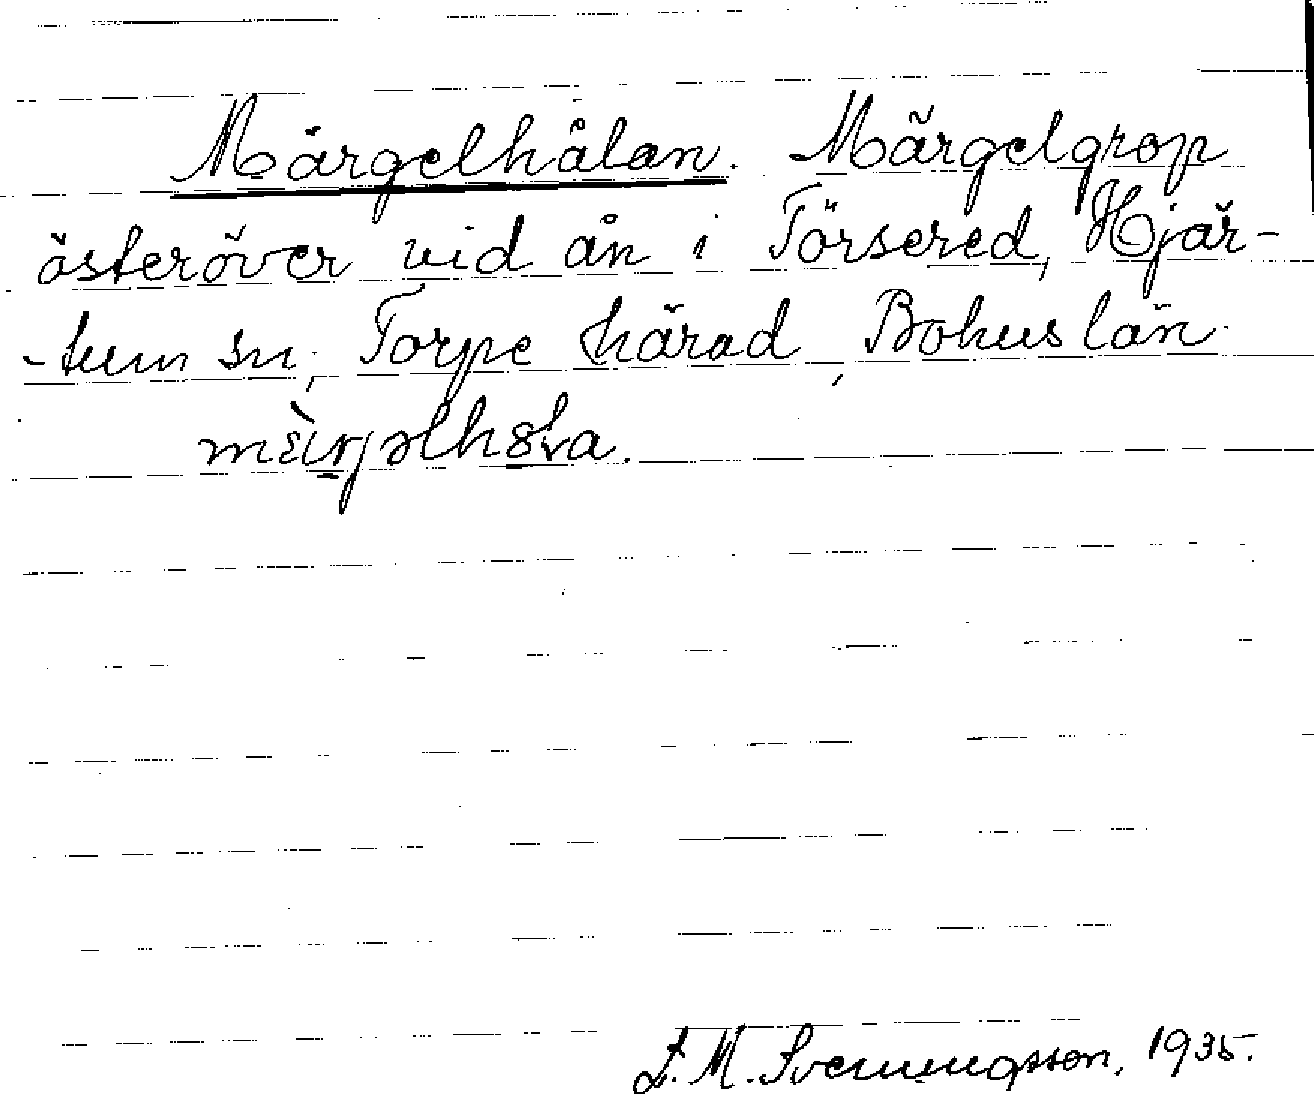 Märgelhålan. Märgelgrop
österöver vid ån i Törsered, Hjär-
-tum sn, Torpe härad, Bohuslän.
L. M. Svenungsson, 1935.